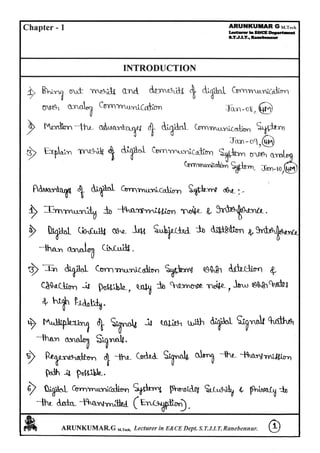 Chapter - 1
ARUNKUMAR G M.Tech
Lecturer in E&CE Department
S.T.J.I.T., Ranebennur
INTRODUCTION
1) Bring out merits and demerits of digital Communication
over analog Communication Jan-08, 4M
2) Mention the advantages of digital Communication System
Jan-09, 4M
3) Explain merits of digital Communication System over analog
Communication System, Jan-10, 4M
Advantages of digital Communication Systems are :-
1) Immunity to transmission noise & Interference.
2) Digital Circuits are less Subjected to distortion & Interference
than analog Circuits.
3) In digital Communication Systems error detection &
Correction is possible, easy to remove noise, low error rates
& high Fidelity.
4) Multiplexing of Signals is easier with digital Signals rather
than analog Signals.
5) Regeneration of the Coded Signals along the transmission
Path is possible.
6) Digital Communication Systems provides Security & privacy to
the data transmitted (Encryption).
ARUNKUMAR.G M.Tech, Lecturer in E&CE Dept. S.T.J.I.T, Ranebennur. 1